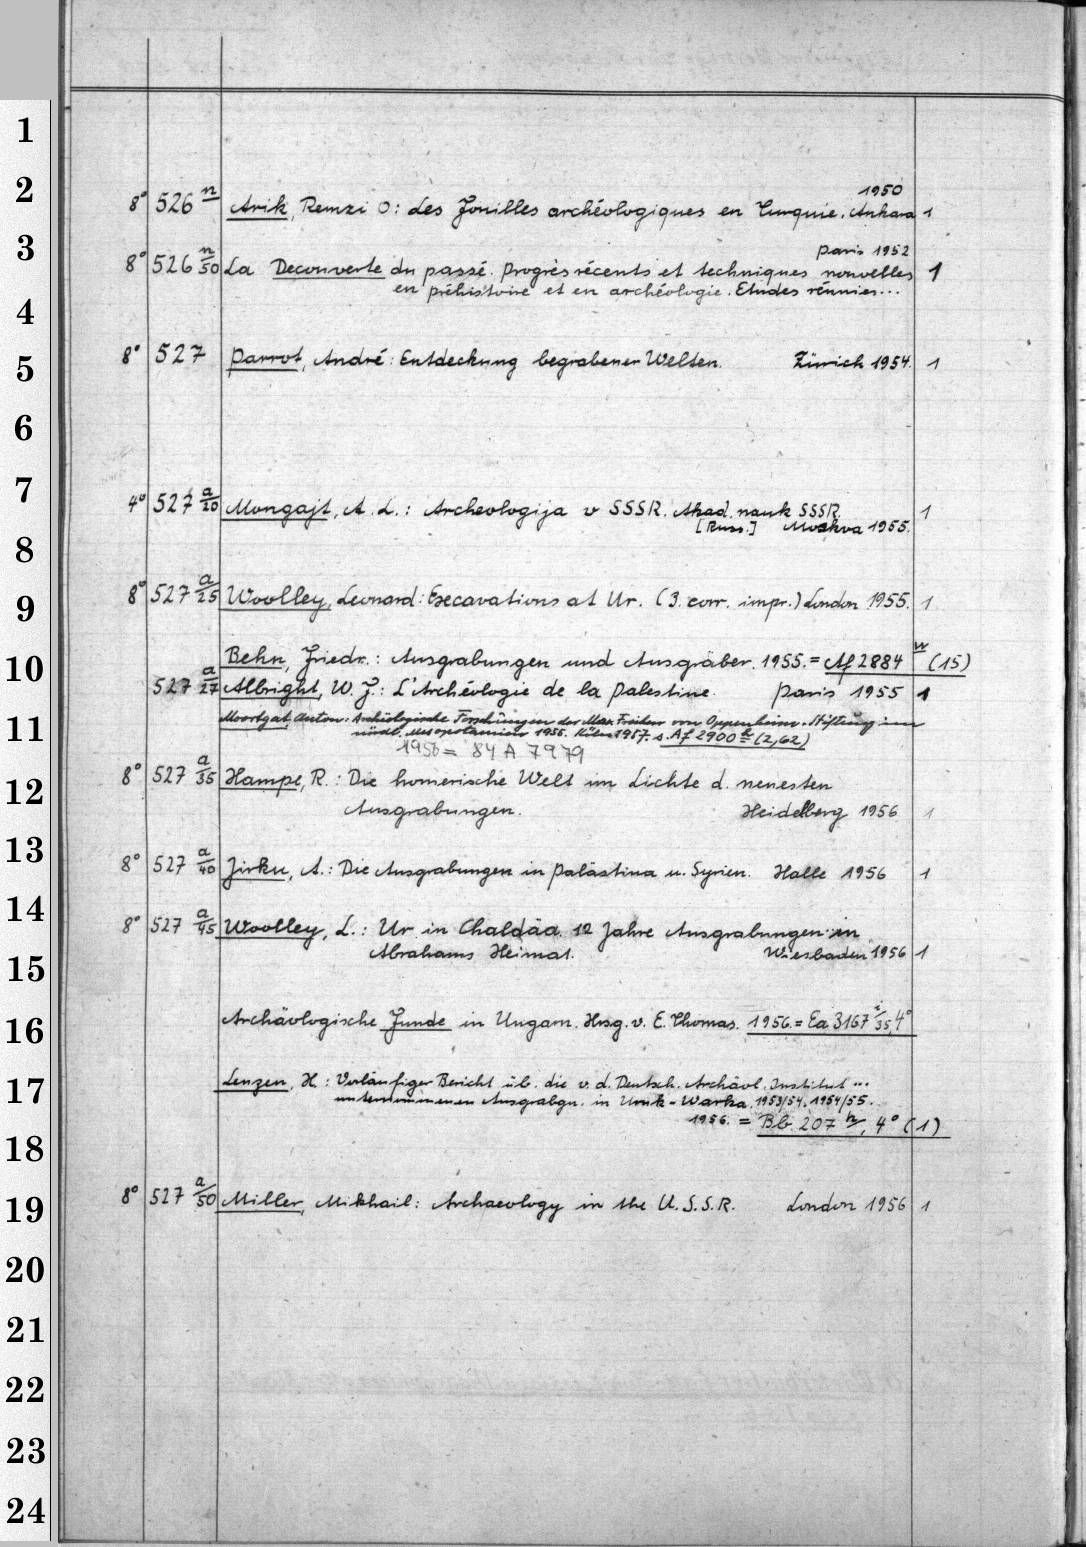 1
2
1950
8° 526 n Arik, Remzi O: Les Fouilles archéologiques en Turquie. Ankara 1
3
Paris 1952
8° 526 n/50 La Decouverte du passé. Progrès récents et techniques nouvelles 1
en préhistoire et en archéologie. Etudes réunies...
4
5
8° 527 Parrot, André: Entdeckung begrabener Welten. Zürich 1954. 1
6
7
4° 527 a/20 Mongajt, A. L.: Archeologija v SSSR. Akad. nauk SSSR.
[Russ.] Moskva 1955. 1
8
9
8° 527 a/25 Woolley, Leonard: Excavations at Ur. (3. corr. impr.) London 1955. 1
10
Behn, Friedr.: Ausgrabungen und Ausgräber. 1955. = Af 2884 w (15)
527 a/27 Albright, W. F.: L'Archéologie de la Palestine. Paris 1955 1
11
Moortgat, Anton: Archäologische Forschungen der Max Freiherr von Oppenheim-Stiftung im
nördl. Mesopotamien 1955. Köln 1957. s. Af 2900 k (2,62)
1956 = 84 A 7979
12
8° 527 a/35 Hampe, R.: Die homerische Welt im Lichte d. neuesten
Ausgrabungen. Heidelberg 1956 1
13
8° 527 a/40 Jirku, A.: Die Ausgrabungen in Palästina u. Syrien. Halle 1956 1
14
8° 527 a/45 Woolley, L.: Ur in Chaldäa. 12 Jahre Ausgrabungen in
15
Abrahams Heimat. Wiesbaden 1956 1
16
Archäologische Funde in Ungarn. Hrsg. v. E. Thomas. 1956. = Ea 3167 i/35, 4°
17
Lenzen, H.: Vorläufiger Bericht üb. die v. d. Deutsch. Archäol. Institut ...
unternommenen Ausgrabgn. in Uruk-Warka. 1953/54. 1954/55.
1956. = Bb. 207 h, 4° (1)
18
19
8° 527 a/50 Miller, Mikhail: Archaeology in the U.S.S.R. London 1956 1
20
21
22
23
24